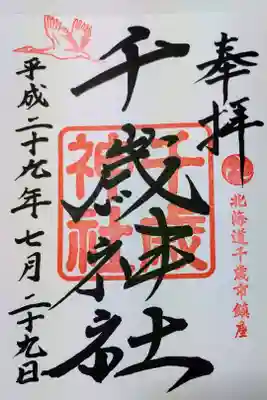 奉拝
北海道千歳市鎮座
千歳神社
千歳
神社
平成二十九年七月二十九日